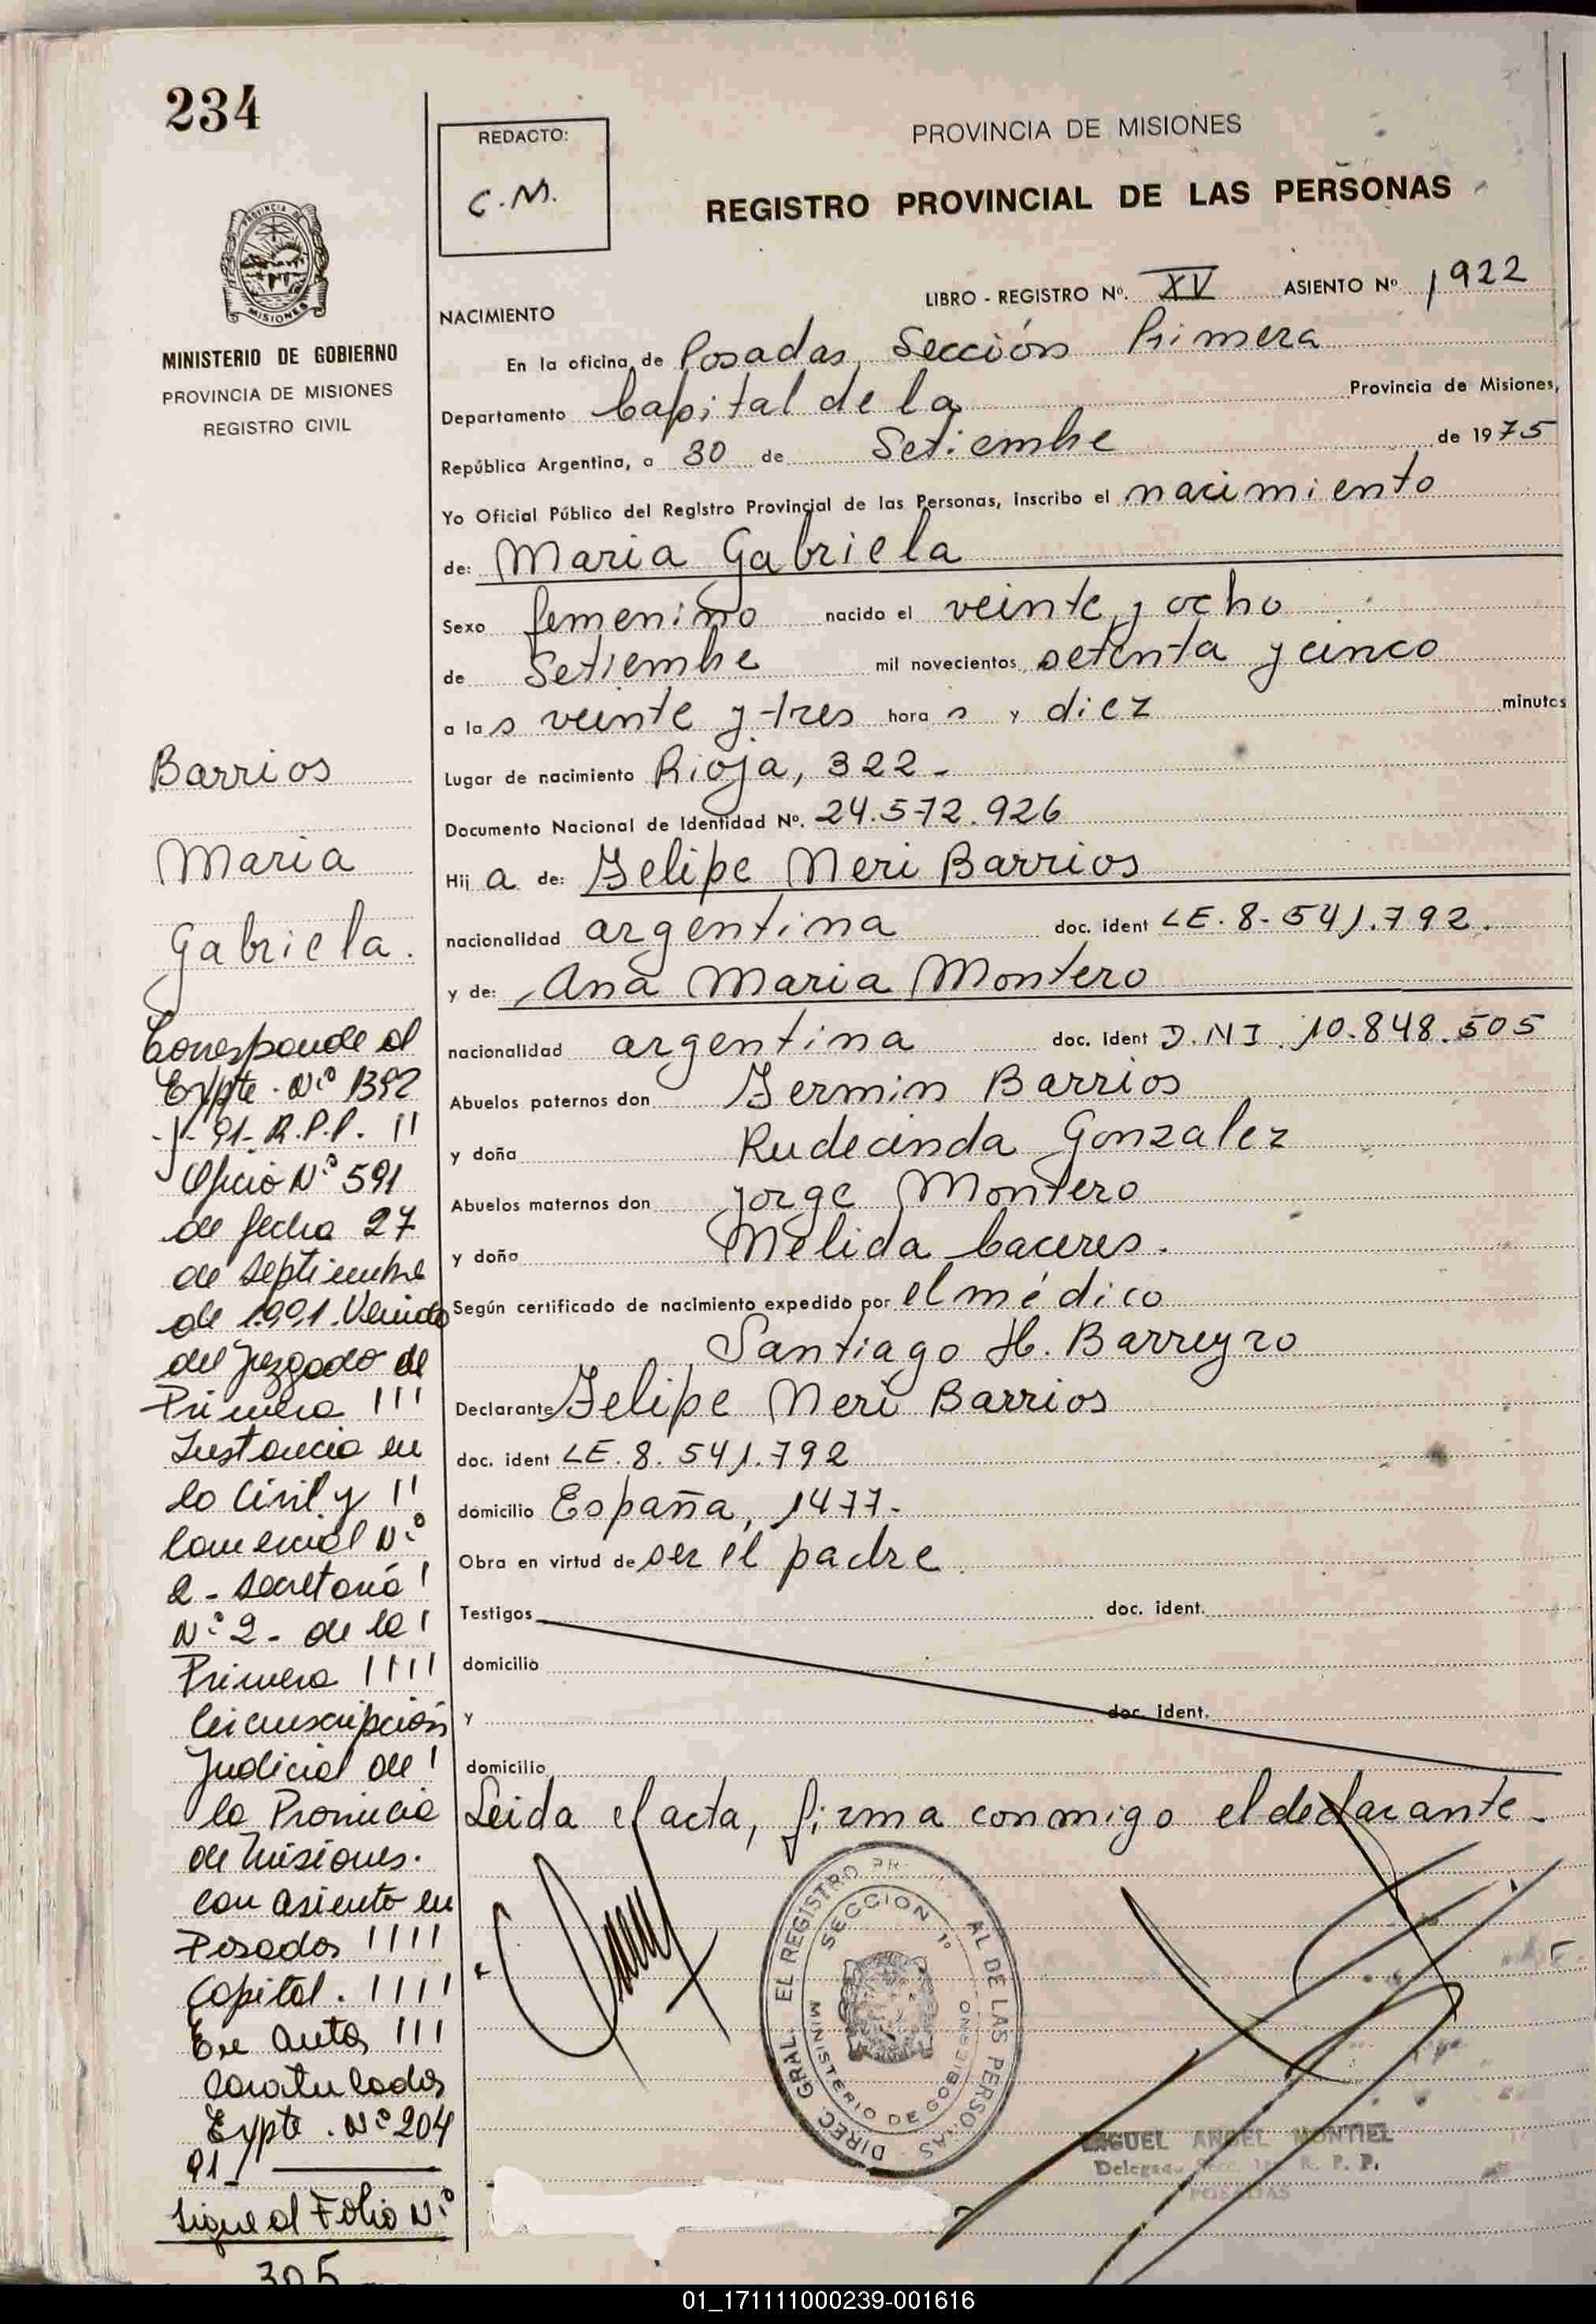 234
PROVINCIA DE MISIONES
MINISTERIO DE GOBIERNO
PROVINCIA DE MISIONES
REGISTRO CIVIL
REDACTO:
C.M.
PROVINCIA DE MISIONES
REGISTRO PROVINCIAL DE LAS PERSONAS
LIBRO - REGISTRO Nº. XV ASIENTO Nº 1922
NACIMIENTO
En la oficina de Posadas Sección Primera
Departamento Capital de la Provincia de Misiones,
República Argentina, a 30 de Setiembre de 1975
Yo Oficial Público del Registro Provincial de las Personas, inscribo el nacimiento
de: Maria Gabriela
Sexo femenino nacido el veinte y ocho
de Setiembre mil novecientos setenta y cinco
a las veinte y tres horas y diez minutos
Lugar de nacimiento Rioja, 322-
Documento Nacional de Identidad Nº. 24.572.926
Hija de: Felipe Neri Barrios
nacionalidad argentina doc. ident LE. 8-541.792.
y de: Ana Maria Montero
nacionalidad argentina doc. ident D.NI. 10.848.505
Abuelos paternos don Fermin Barrios
y doña Rudecinda Gonzalez
Abuelos maternos don Jorge Montero
y doña Nelida Caceres.
Según certificado de nacimiento expedido por el médico
Santiago H. Barreyro
Declarante Felipe Neri Barrios
doc. ident LE. 8. 541.792
domicilio España, 1477-
Obra en virtud de ser el padre
Testigos doc. ident.
domicilio
y doc. ident.
domicilio
Leida el acta, firma conmigo el declarante-
DIREC. GRAL. EL REGISTRO PR AL DE LAS PERSO AS
SECCION 1º
MINISTERIO DE GOBIERNO
MIGUEL ANGEL MONTIEL
R. P. P.
POSADAS
Barrios
Maria
Gabriela.
Corresponde al
Expte. Nº 1392
-J- 91- R.P.P. !!
Oficio Nº 591
de fecha 27
de septiembre
de 1.991. Venido
del Juzgado de
Primera !!!
Instancia en
lo Civil y !!
Comercial Nº
2 - Secretaria !
Nº 2 - de la !
Primera !!!!
Circunscripción
Judicial de !
la Provincia
de Misiones.
con asiento en
Posadas !!!!
Capital. !!!!
En autos !!!
Caratulados
Expte. Nº 204
91
Sigue al Folio Nº
305
01_171111000239-001616